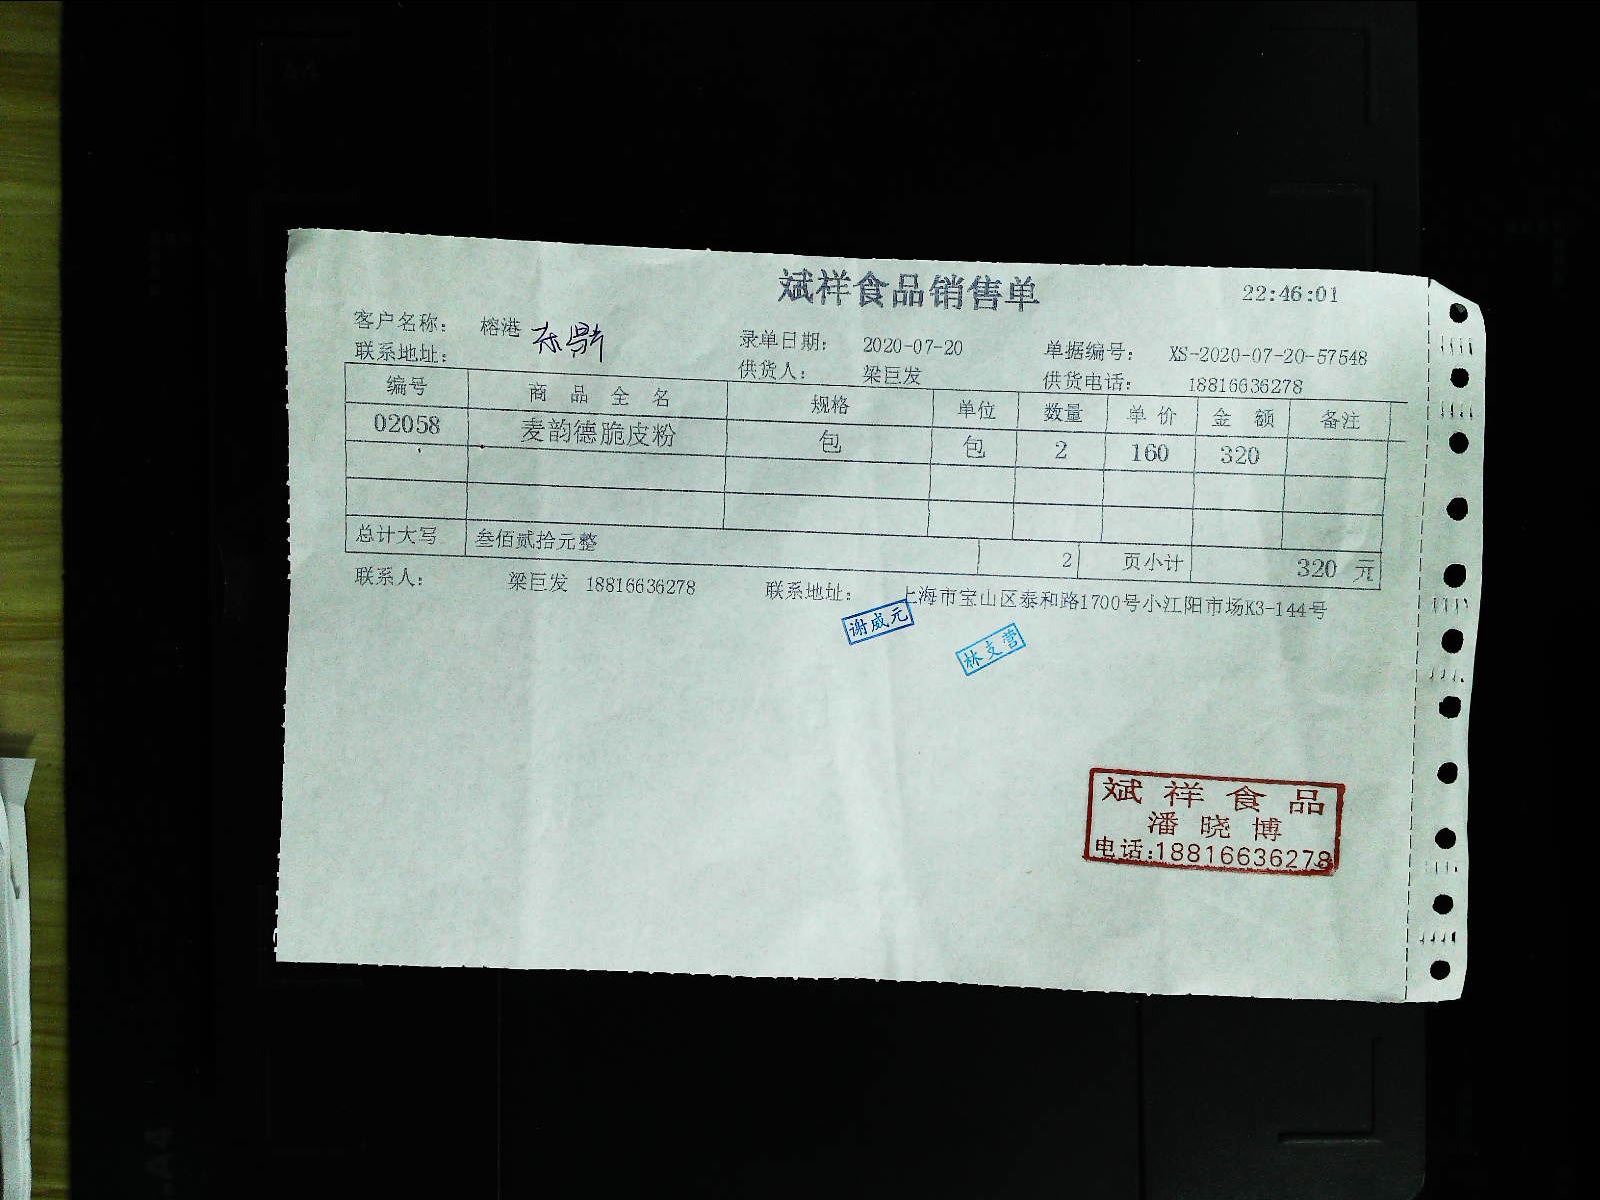 斌祥食品销售单
22:46:01
客户名称: 榕港 东鼎 录单日期: 2020-07-20 单据编号: XS-2020-07-20-57548
联系地址: 供货人: 梁巨发 供货电话: 18816636278
编号 商品全名 规格 单位 数量 单价 金额 备注
02058 麦韵德脆皮粉 包 包 2 160 320
总计大写 叁佰贰拾元整 2 页小计 320 元
联系人: 梁巨发 18816636278 联系地址: 上海市宝山区泰和路1700号小江阳市场K3-144号
谢威元
林支营
斌祥食品
潘晓博
电话:18816636278